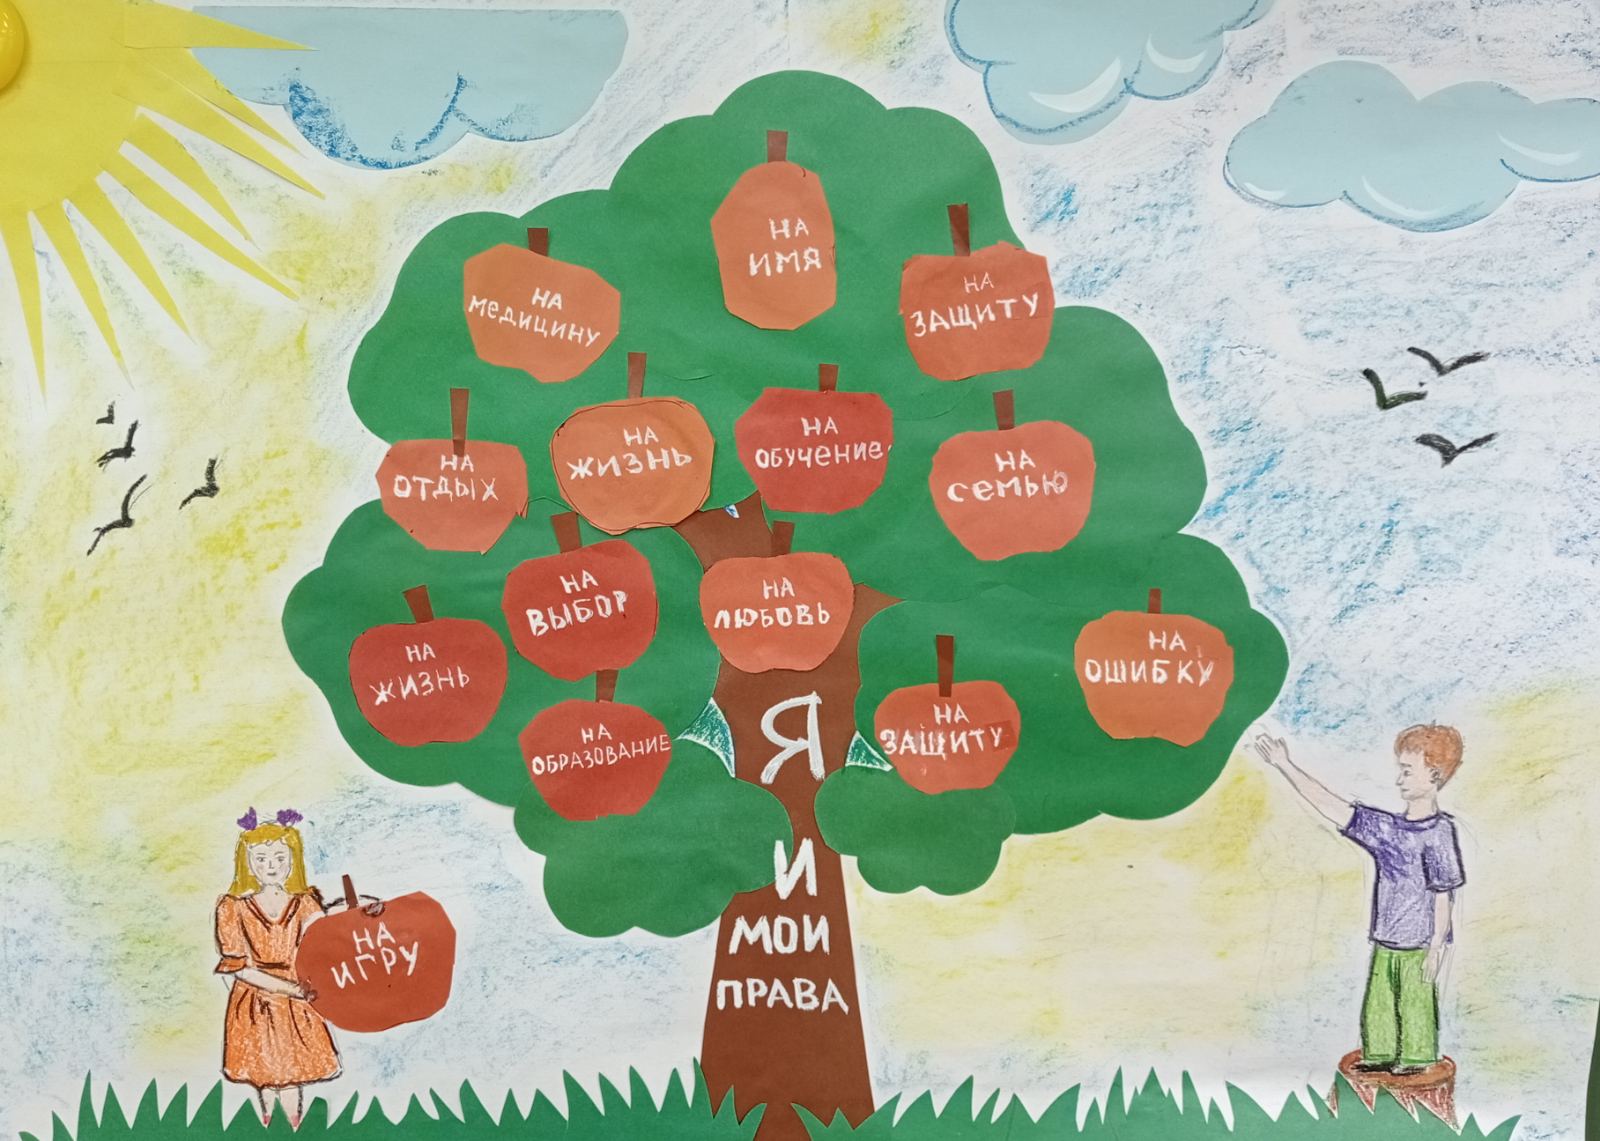 НА
ИМЯ
НА
МЕДИЦИНУ
НА
ЗАЩИТУ
НА
ОТДЫХ
НА
ЖИЗНЬ
НА
ОБУЧЕНИЕ
НА
СЕМЬЮ
НА
ЖИЗНЬ
НА
ВЫБОР
НА
ЛЮБОВЬ
НА
ОШИБКУ
НА
ОБРАЗОВАНИЕ
НА
ЗАЩИТУ
Я
И
МОИ
ПРАВА
НА
ИГРУ